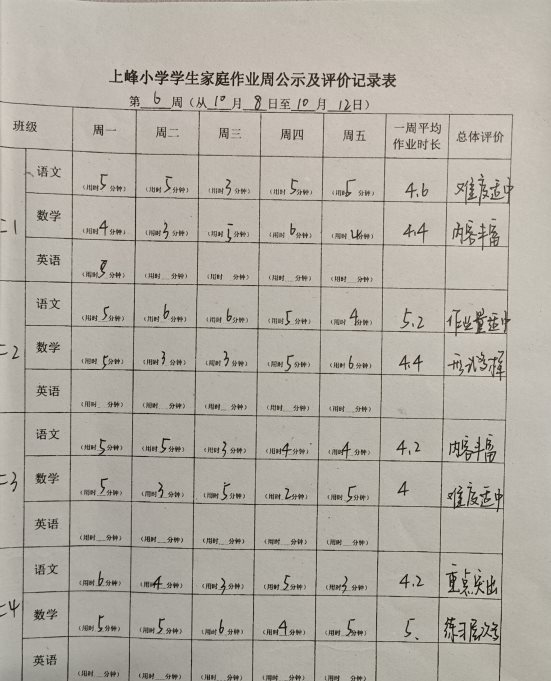 上峰小学学生家庭作业周公示及评价记录表
第 6 周（从 10 月 8 日至 10 月 12日）
班级 周一 周二 周三 周四 周五 一周平均作业时长 总体评价
二1 语文 （用时5分钟） （用时5分钟） （用时3分钟） （用时5分钟） （用时5分钟） 4.6 难度适中
数学 （用时4分钟） （用时3分钟） （用时5分钟） （用时6分钟） （用时4分钟） 4.4 内容丰富
英语 （用时 分钟） （用时 分钟） （用时 分钟） （用时 分钟） （用时 分钟）
二2 语文 （用时5分钟） （用时6分钟） （用时6分钟） （用时5分钟） （用时4分钟） 5.2 作业量适中
数学 （用时5分钟） （用时3分钟） （用时3分钟） （用时5分钟） （用时6分钟） 4.4 形式多样
英语 （用时 分钟） （用时 分钟） （用时 分钟） （用时 分钟） （用时 分钟）
二3 语文 （用时5分钟） （用时5分钟） （用时3分钟） （用时4分钟） （用时4分钟） 4.2 内容丰富
数学 （用时5分钟） （用时3分钟） （用时5分钟） （用时2分钟） （用时5分钟） 4 难度适中
英语 （用时 分钟） （用时 分钟） （用时 分钟） （用时 分钟） （用时 分钟）
二4 语文 （用时6分钟） （用时4分钟） （用时3分钟） （用时5分钟） （用时3分钟） 4.2 重点突出
数学 （用时5分钟） （用时5分钟） （用时6分钟） （用时4分钟） （用时5分钟） 5. 练习
英语 （用时 分钟） （用时 分钟） （用时 分钟） （用时 分钟） （用时 分钟）